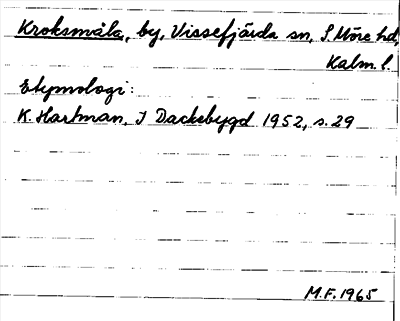 Kroksmåla, by, Vissefjärda sn, S Möre hd,
Kalm. l.
Etymologi:
K. Hartman, I Dackebygd 1952, s. 29
M.F. 1965